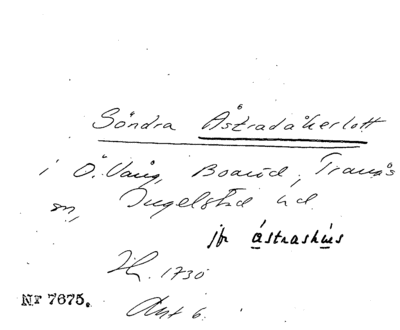 Södra Åstradåkerlott
i Ö. Vång, Boaröd, Tranås
sn, Ingelstad hd
jfr ástrashús
Lh. 1730
Akt 6.
Nr 7675.